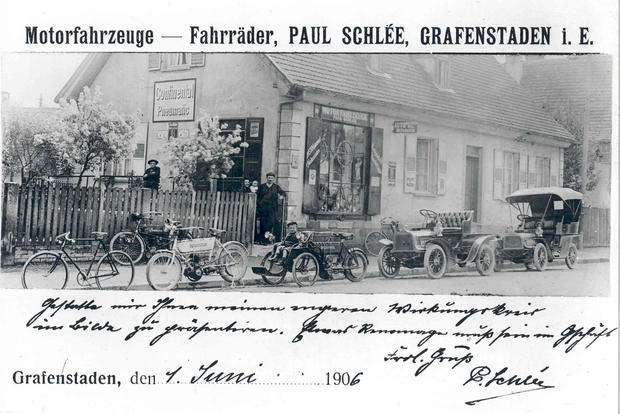 Motorfahrzeuge — Fahrräder, PAUL SCHLÉE, GRAFENSTADEN i. E.
Continental
Pneumatic
Gestatte mir Ihnen meinen engeren Wirkungskreis
im Bilde zu präsentieren. Etwas Renomage muß sein im Gschäft
Frdl. Gruß
P. Schlée
Grafenstaden, den 1. Juni 1906